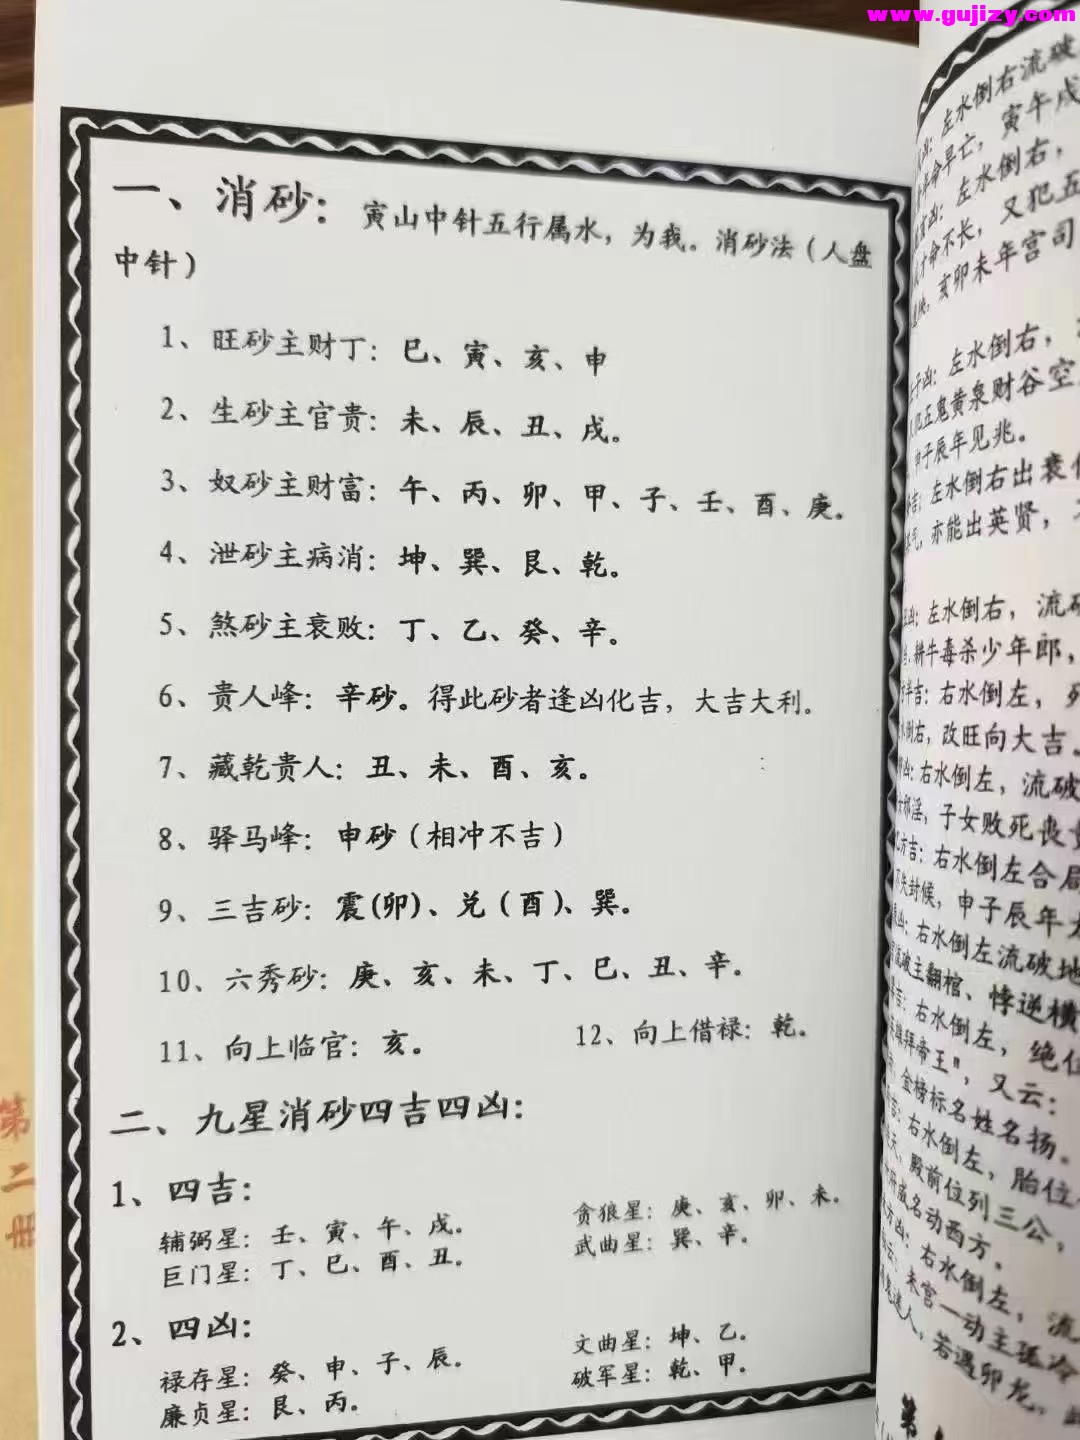 www.gujizy.com
一、消砂：寅山中针五行属水，为我。消砂法（人盘
中针）
1、旺砂主财丁：巳、寅、亥、申
2、生砂主官贵：未、辰、丑、戌。
3、奴砂主财富：午、丙、卯、甲、子、壬、酉、庚。
4、泄砂主病消：坤、巽、艮、乾。
5、煞砂主衰败：丁、乙、癸、辛。
6、贵人峰：辛砂。得此砂者逢凶化吉，大吉大利。
7、藏乾贵人：丑、未、酉、亥。
8、驿马峰：申砂（相冲不吉）
9、三吉砂：震(卯)、兑（酉）、巽。
10、六秀砂：庚、亥、未、丁、巳、丑、辛。
11、向上临官：亥。 12、向上借禄：乾。
二、九星消砂四吉四凶：
1、四吉：
辅弼星：壬、寅、午、戌。 贪狼星：庚、亥、卯、未。
巨门星：丁、巳、酉、丑。 武曲星：巽、辛。
2、四凶：
禄存星：癸、申、子、辰。 文曲星：坤、乙。
廉贞星：艮、丙。 破军星：乾、甲。
第二册
凶：左水倒右流破
命早亡，寅午戌
凶：左水倒右，
才命不长，又犯五
亥卯未年宫司
子凶：左水倒右，
犯五鬼黄泉财谷空
申子辰年见兆。
吉；左水倒右出衰
气，亦能出英贤，
凶：左水倒右，流破
耕牛毒杀少年郎，
半吉：右水倒左，死
倒右，改旺向大吉。
凶：右水倒左，流破
邪淫，子女败死丧
方吉：右水倒左合局
失封候，申子辰年
凶：右水倒左流破地
流破主翻棺、悖逆横
吉：右水倒左，绝位
雄拜帝王"，又云：
金榜标名姓名扬。
吉：右水倒左，胎位
天，殿前位列三公，
府威名动西方。
方凶：右水倒左，流
云：未宫一动主孤冷
迷人，若遇卯龙，
第